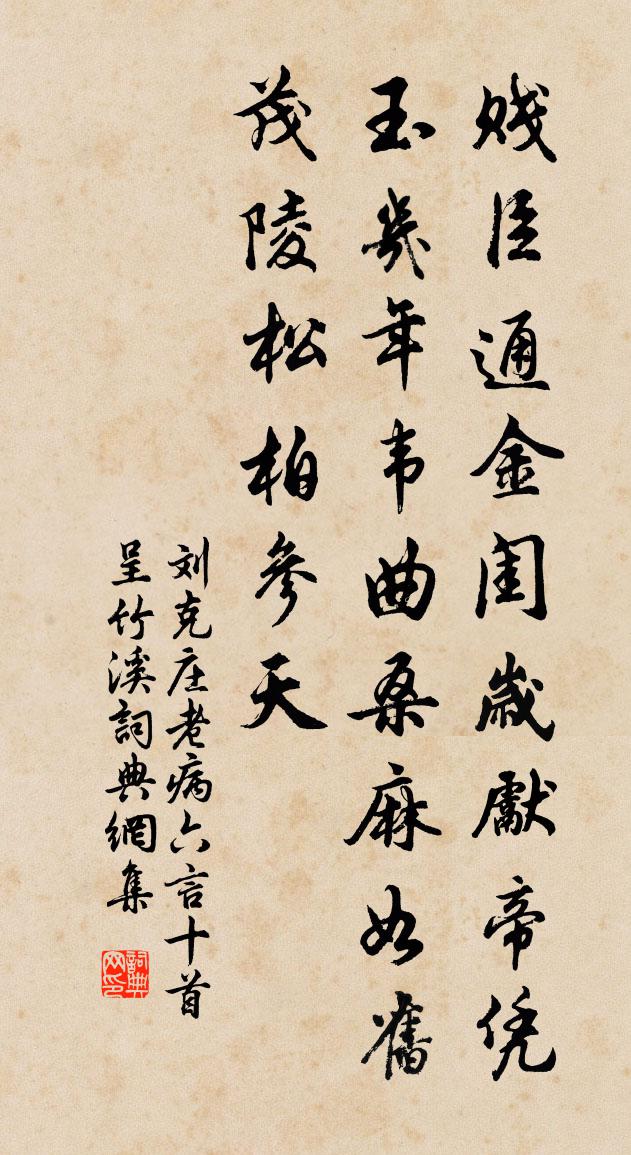 贱臣通金闺歲獻帝凭
玉幾年韦曲桑麻如舊
茂陵松柏參天
刘克庄老病六言十首
呈竹溪詞典網集
詞典网印